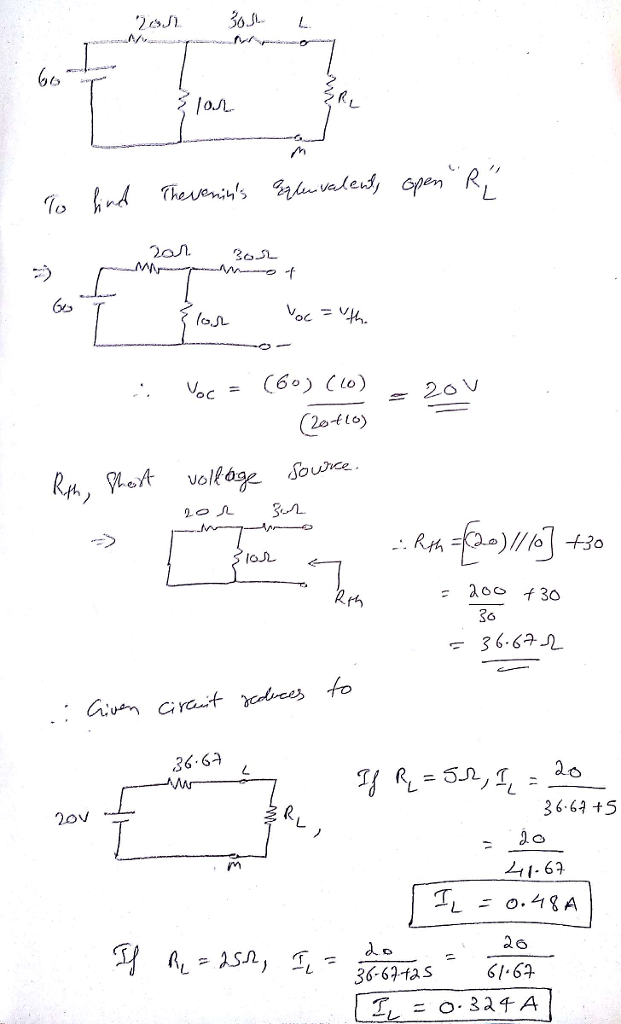 20Ω 30Ω L
60
10Ω RL
M
To find Thevenin's Equivalent, open "RL"
⇒ 20Ω 30Ω +
60
10Ω Voc = Vth.
−
∴ Voc = (60) (10) / (20+10) = 20V
Rth, Short voltage Source.
20Ω 30Ω
⇒ 10Ω
Rth
∴ Rth = [(20)//10] +30
= 200/30 +30
= 36.67Ω
∴ Given circuit reduces to
36.67 L
20V RL,
M
If RL = 5Ω, IL = 20 / 36.67+5
= 20 / 41.67
IL = 0.48A
If RL = 25Ω, IL = 20 / 36.67+25 = 20 / 61.67
IL = 0.324 A